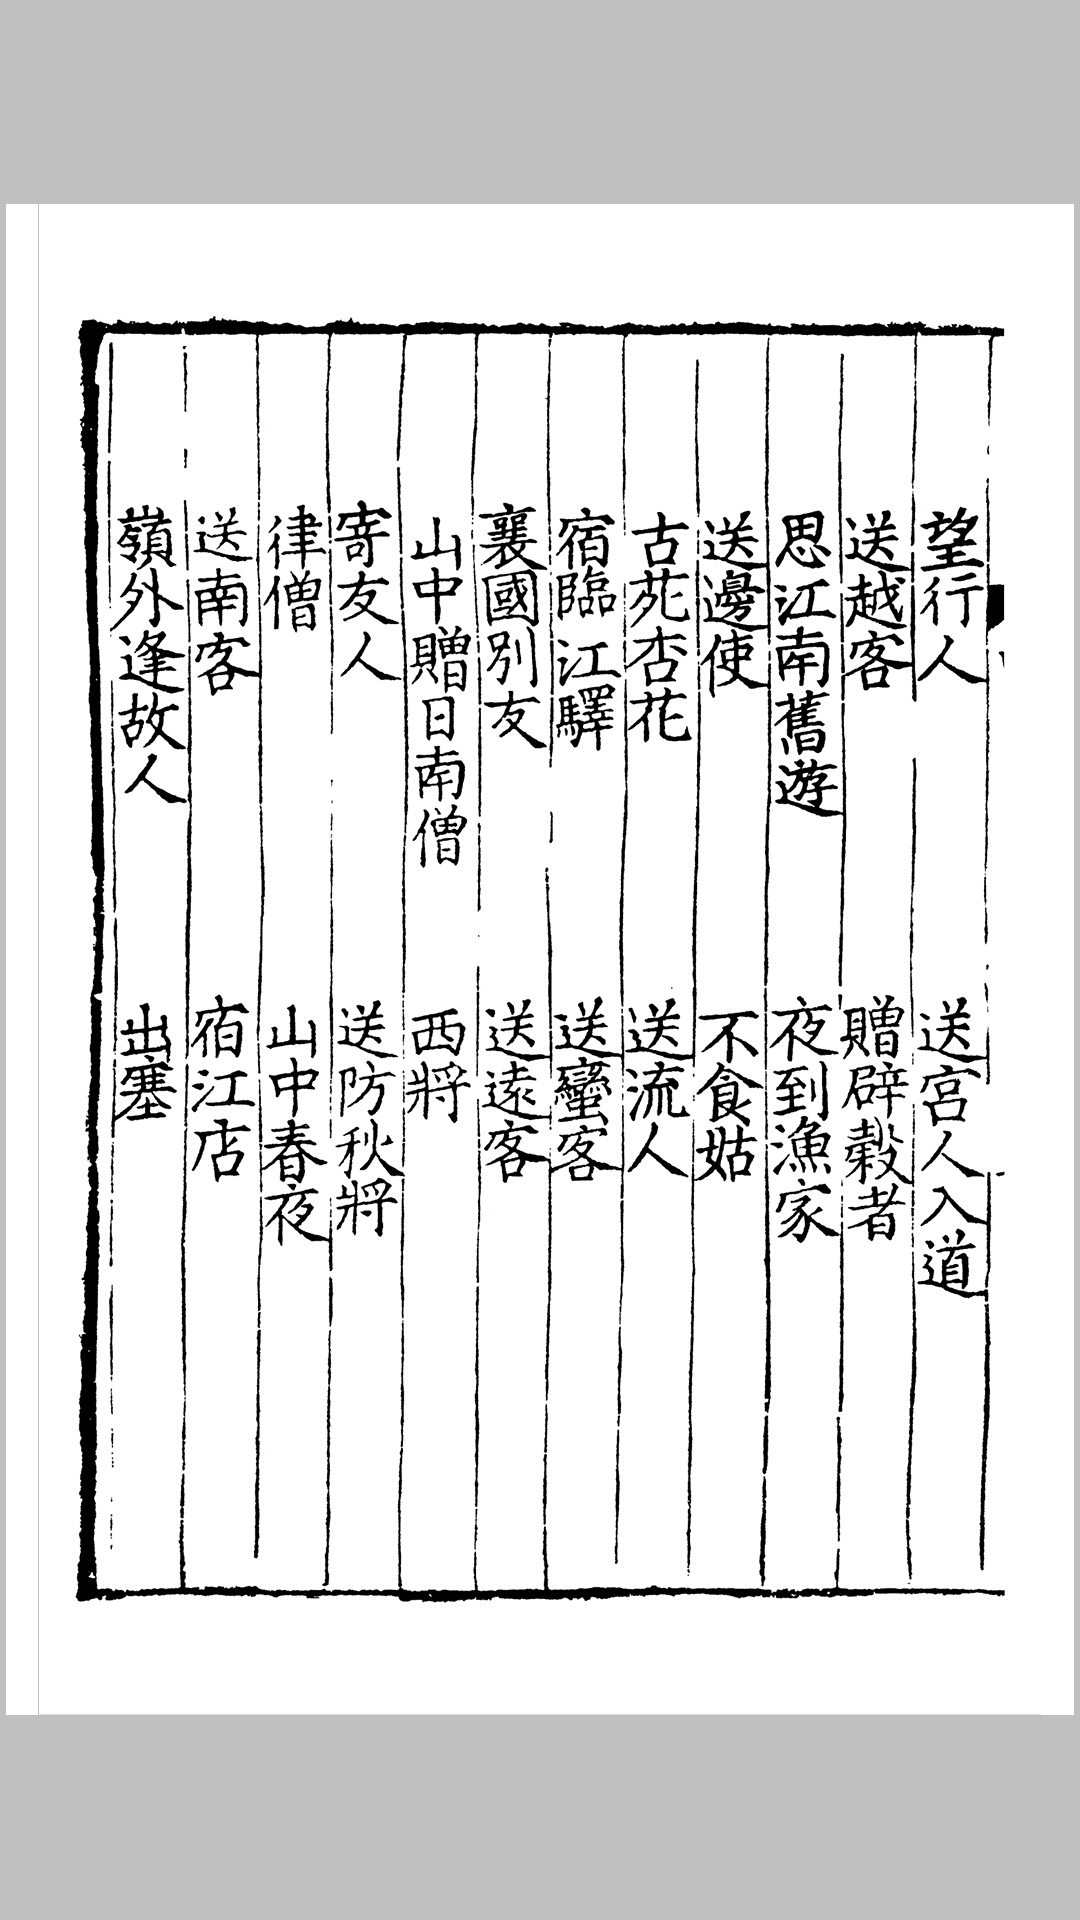 望行人　送宮人入道
送越客　贈辟穀者
思江南舊遊　夜到漁家
送邊使　不食姑
古苑杏花　送流人
宿臨江驛　送蠻客
襄國別友　送遠客
山中贈日南僧　西將
寄友人　送防秋將
律僧　山中春夜
送南客　宿江店
嶺外逢故人　出塞